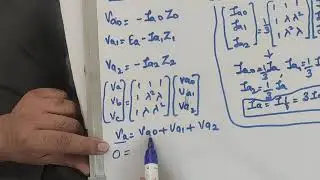 Va0 = - Ia0 Z0
Va1 = Ea - Ia1 Z1
Va2 = - Ia2 Z2
(Va Vb) = (1 1 1 / 1 λ² λ / 1 λ λ²) (Va0 Va1 Va2)
Va = Va0 + Va1 + Va2
0 =
(Ia0 Ia1) = 1/3 (1 1 1 / 1 λ λ² / 1 λ² λ) (Ia
Ia0 = 1/3
Ia
Ia = If = 3I